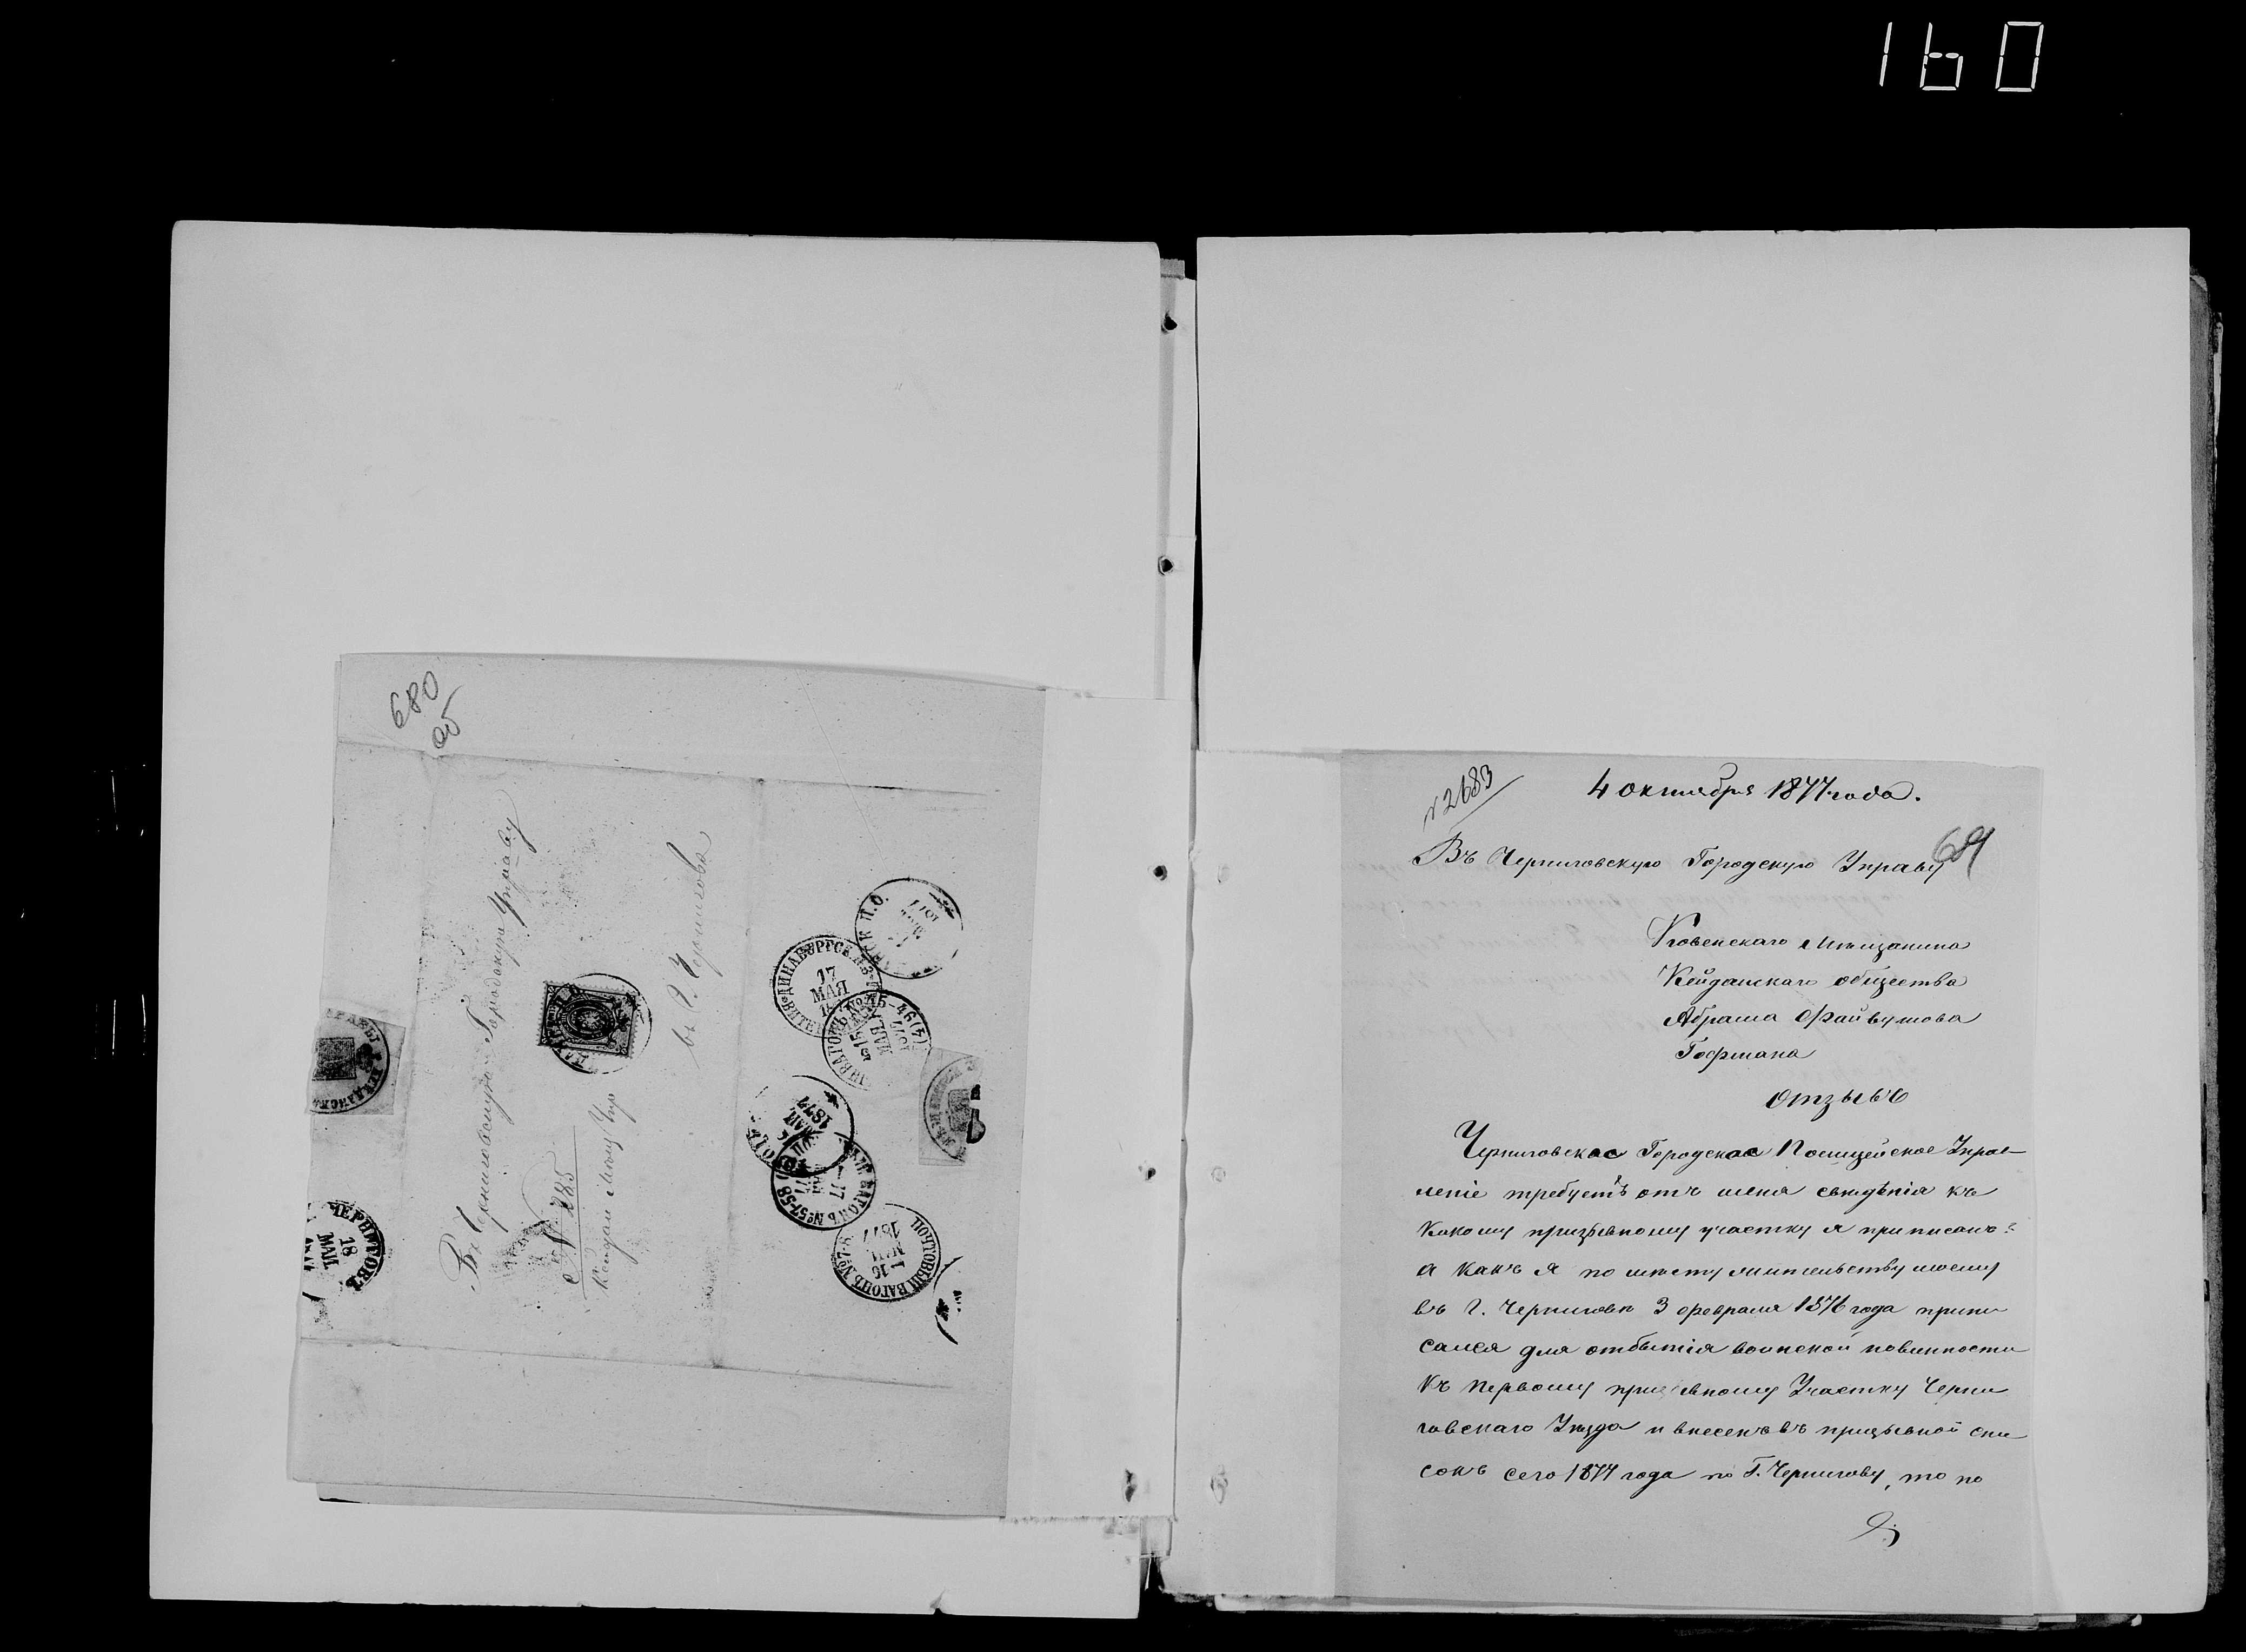 160
680
об
Въ Черниговскую Городскую Управу
въ г. Черниговъ
№ 285
Кейдан Мѣщ Упр
ЧЕРНИГОВЪ
18
МАЯ
ДИНАБУРГСК
17
МАЯ
ВАГОНЪ № 45-46 (4)
15
МАЯ
1877
П.О.
МАЯ
1877
ВАГОНЪ № 57-58
17
ПОЧТОВЫЙ ВАГОНЪ № 7-8
16
МАЯ
1877
№ 2683
4 октября 1877 года.
681
Въ Черниговскую Городскую Управу
Ковенскаго Мѣщанина
Кейданскаго общества
Абрама Файвушова
Гофмана
Отзывъ
Черниговская Городская Полицейское Управ-
леніе требуетъ отъ меня свѣдѣнія къ
какому призывному участку я приписанъ?
а какъ я по мѣсту жительству моему
въ г. Черниговѣ 3 февраля 1876 года припи
сался для отбытія воинской повинности
къ первому призывному Участку Черни
говскаго Уѣзда и внесенъ въ призывной спи
сокъ сего 1877 года по Г. Чернигову, то по